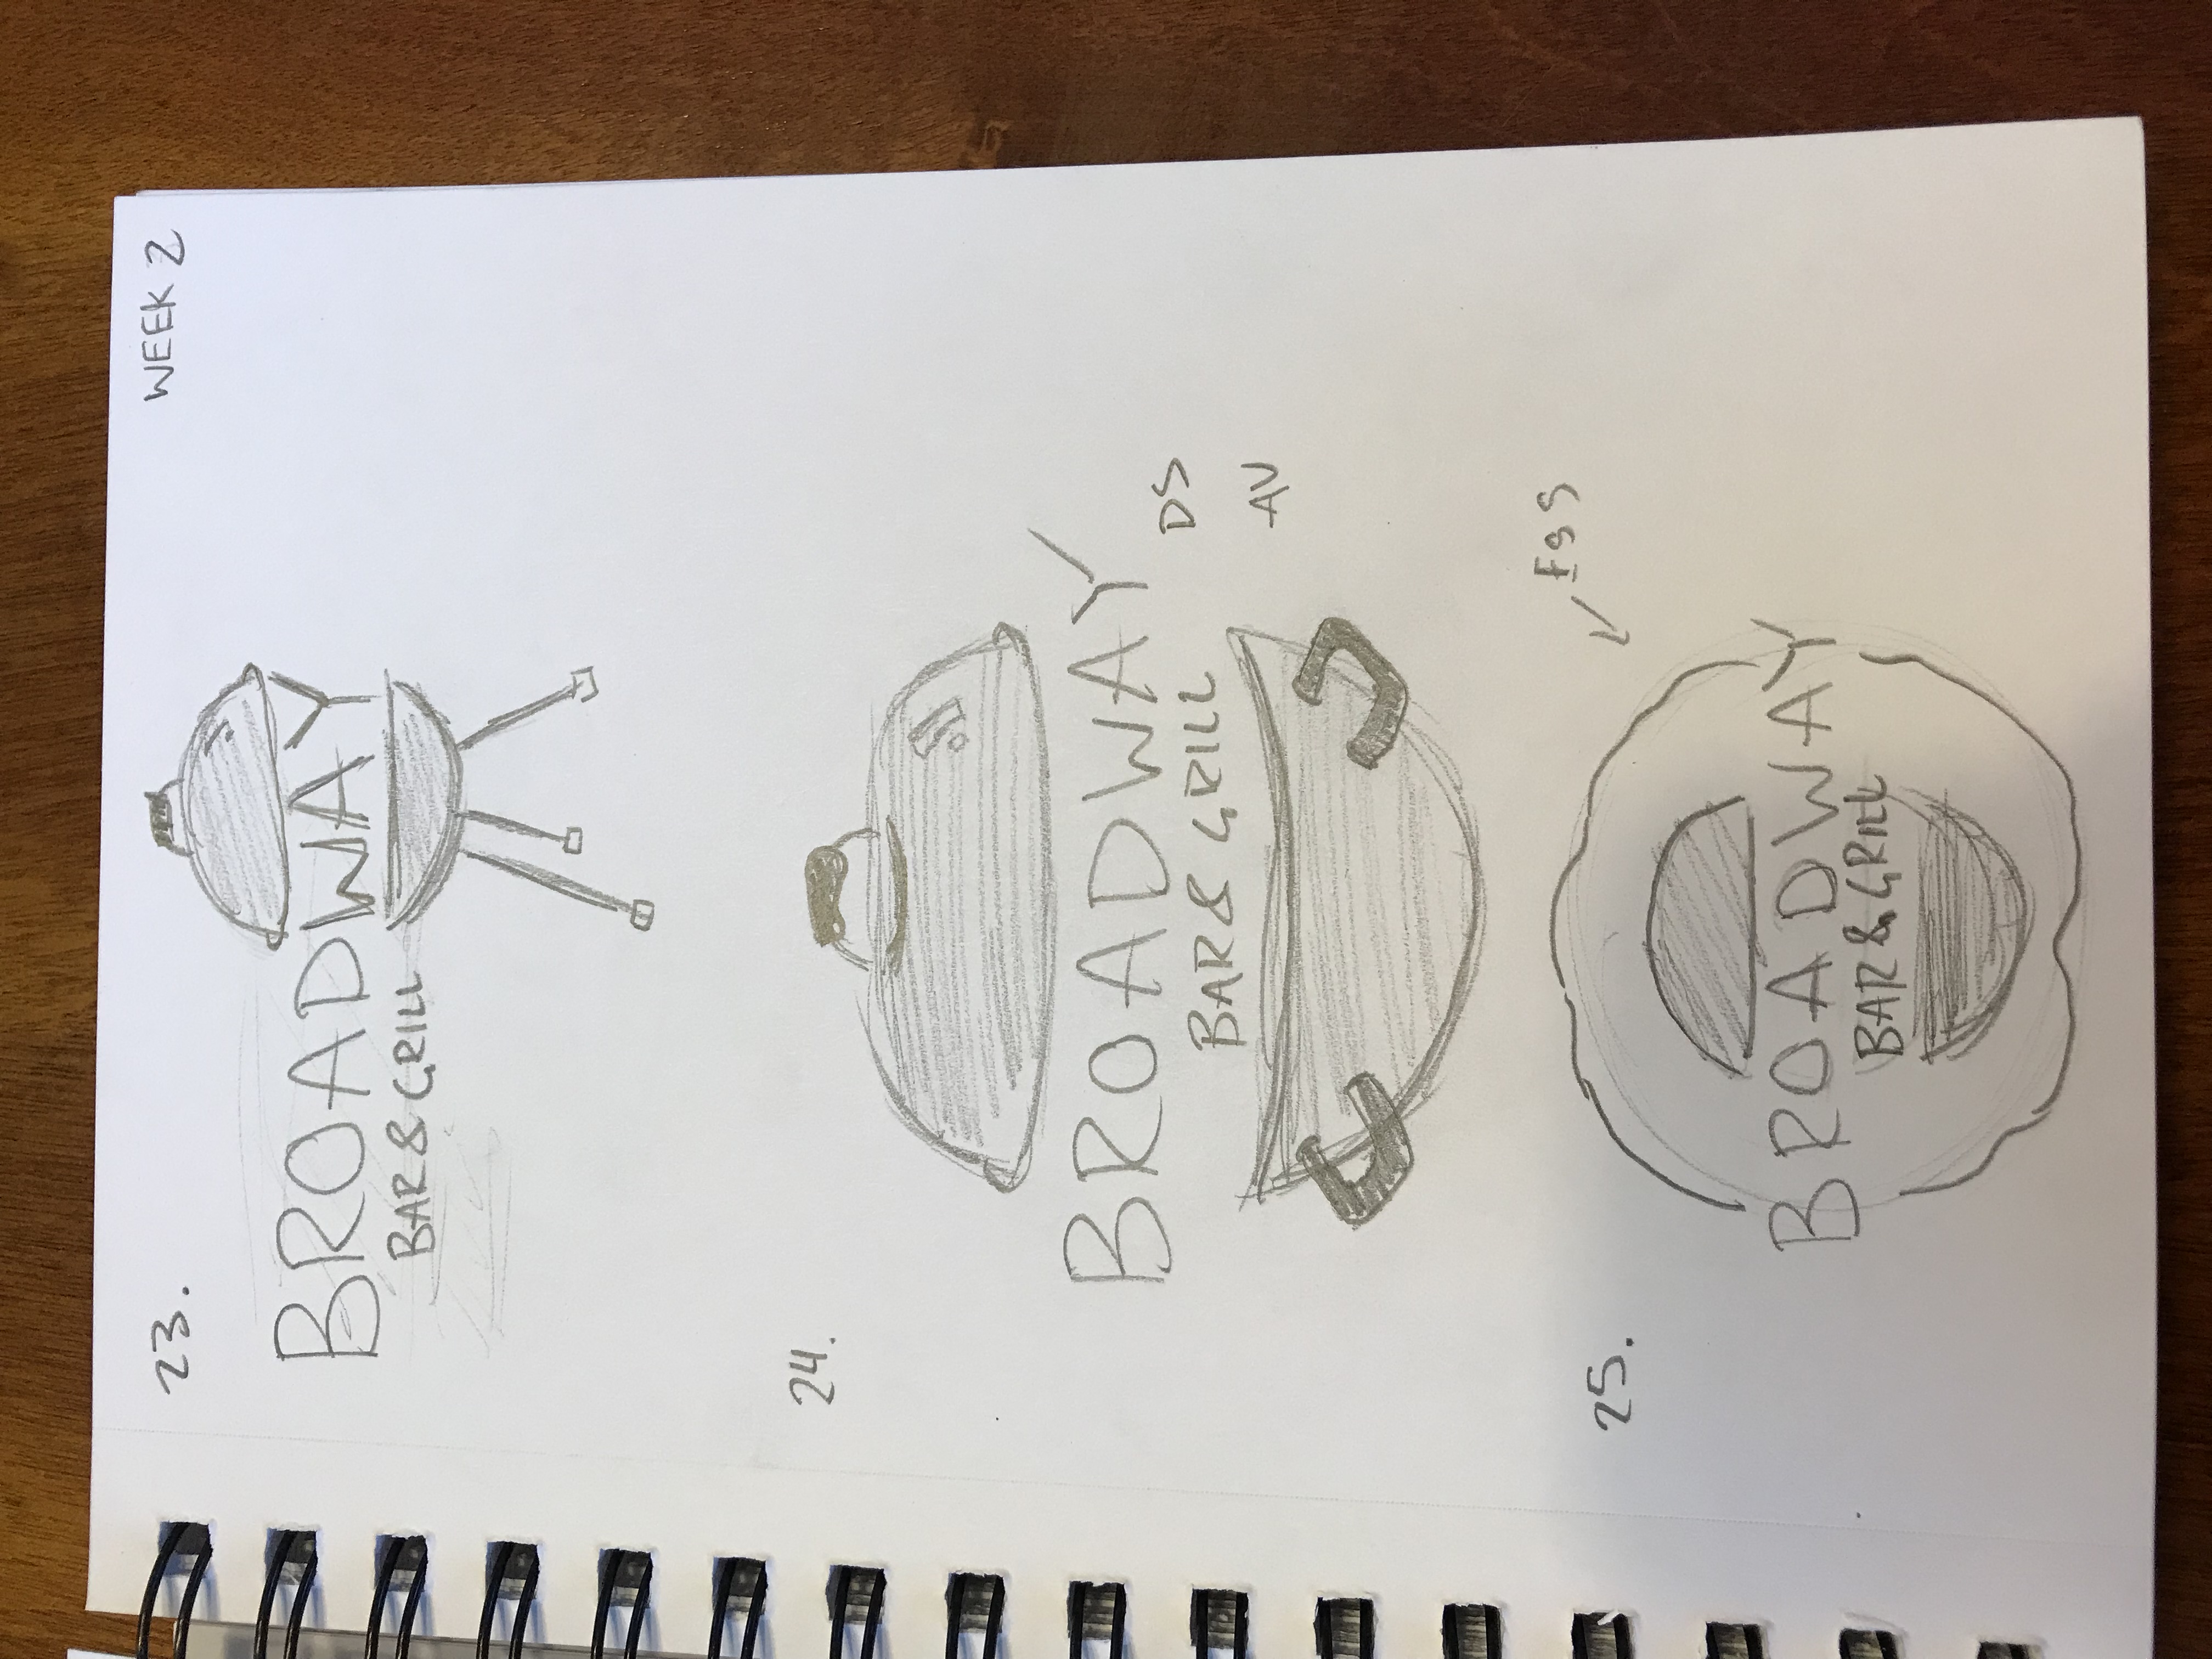 23.
WEEK 2
BROADWAY
BAR & GRILL
24.
BROADWAY
DS
BAR & GRILL
AV
Egg
25.
BROADWAY
BAR & GRILL